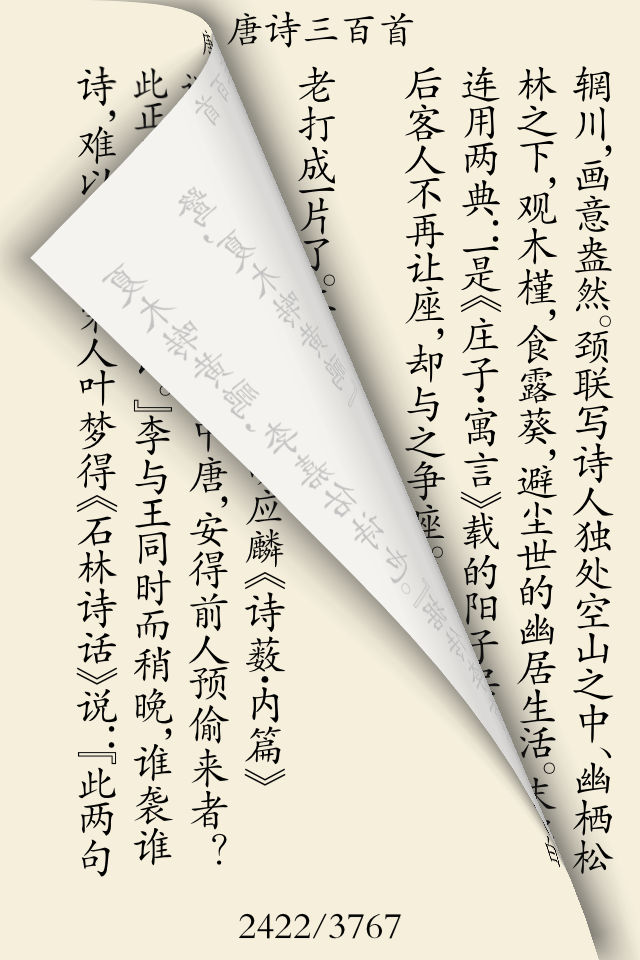 唐诗三百首
辋川，画意盎然。颈联写诗人独处空山之中、幽栖松
林之下，观木槿，食露葵，避尘世的幽居生活。末
连用两典：一是《庄子·寓言》载的阳子
后客人不再让座，却与之争座。
老打成一片了。
应麟《诗薮·内篇》
中唐，安得前人预偷来者？
此正 。』李与王同时而稍晚，谁袭谁
诗，难以 人叶梦得《石林诗话》说：『此两句
2422/3767